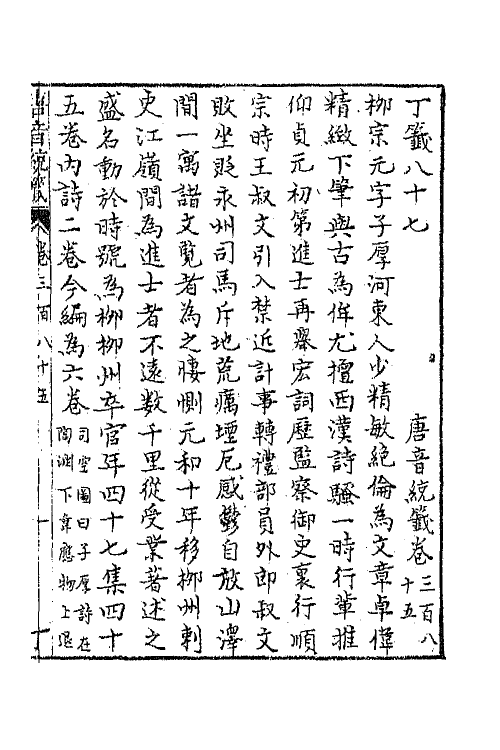 丁籤八十七　唐音統籤卷三百八十五
柳宗元字子厚河東人少精敏絕倫為文章卓偉
精緻下筆與古為侔尤擅西漢詩騷一時行輩推
仰貞元初第進士再舉宏詞歷監察御史裏行順
宗時王叔文引入禁近計事轉禮部員外郎叔文
敗坐貶永州司馬斥地荒癘堙厄感鬱自放山澤
間一寓諸文覽者為之悽惻元和十年移柳州刺
史江嶺間為進士者不遠數千里從受業著述之
盛名動於時號為柳柳州卒官年四十七集四十
五卷內詩二卷今編為六卷司空圖曰子厚詩在陶淵下韋應物上退
音統籤　卷三百八十五　一　丁